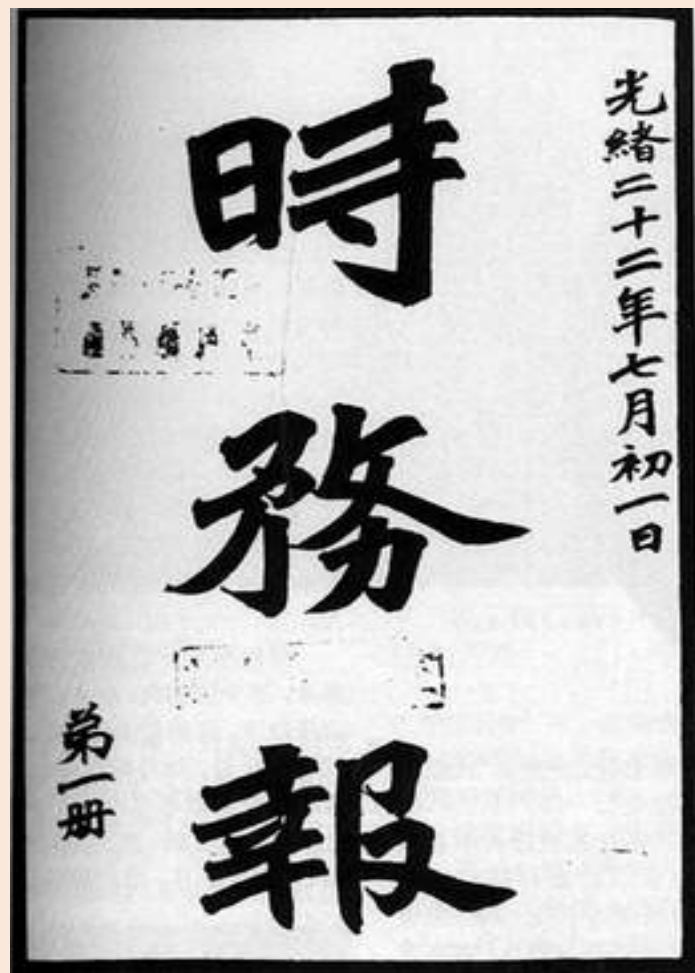 光緒二十二年七月初一日
時務報
弟一册